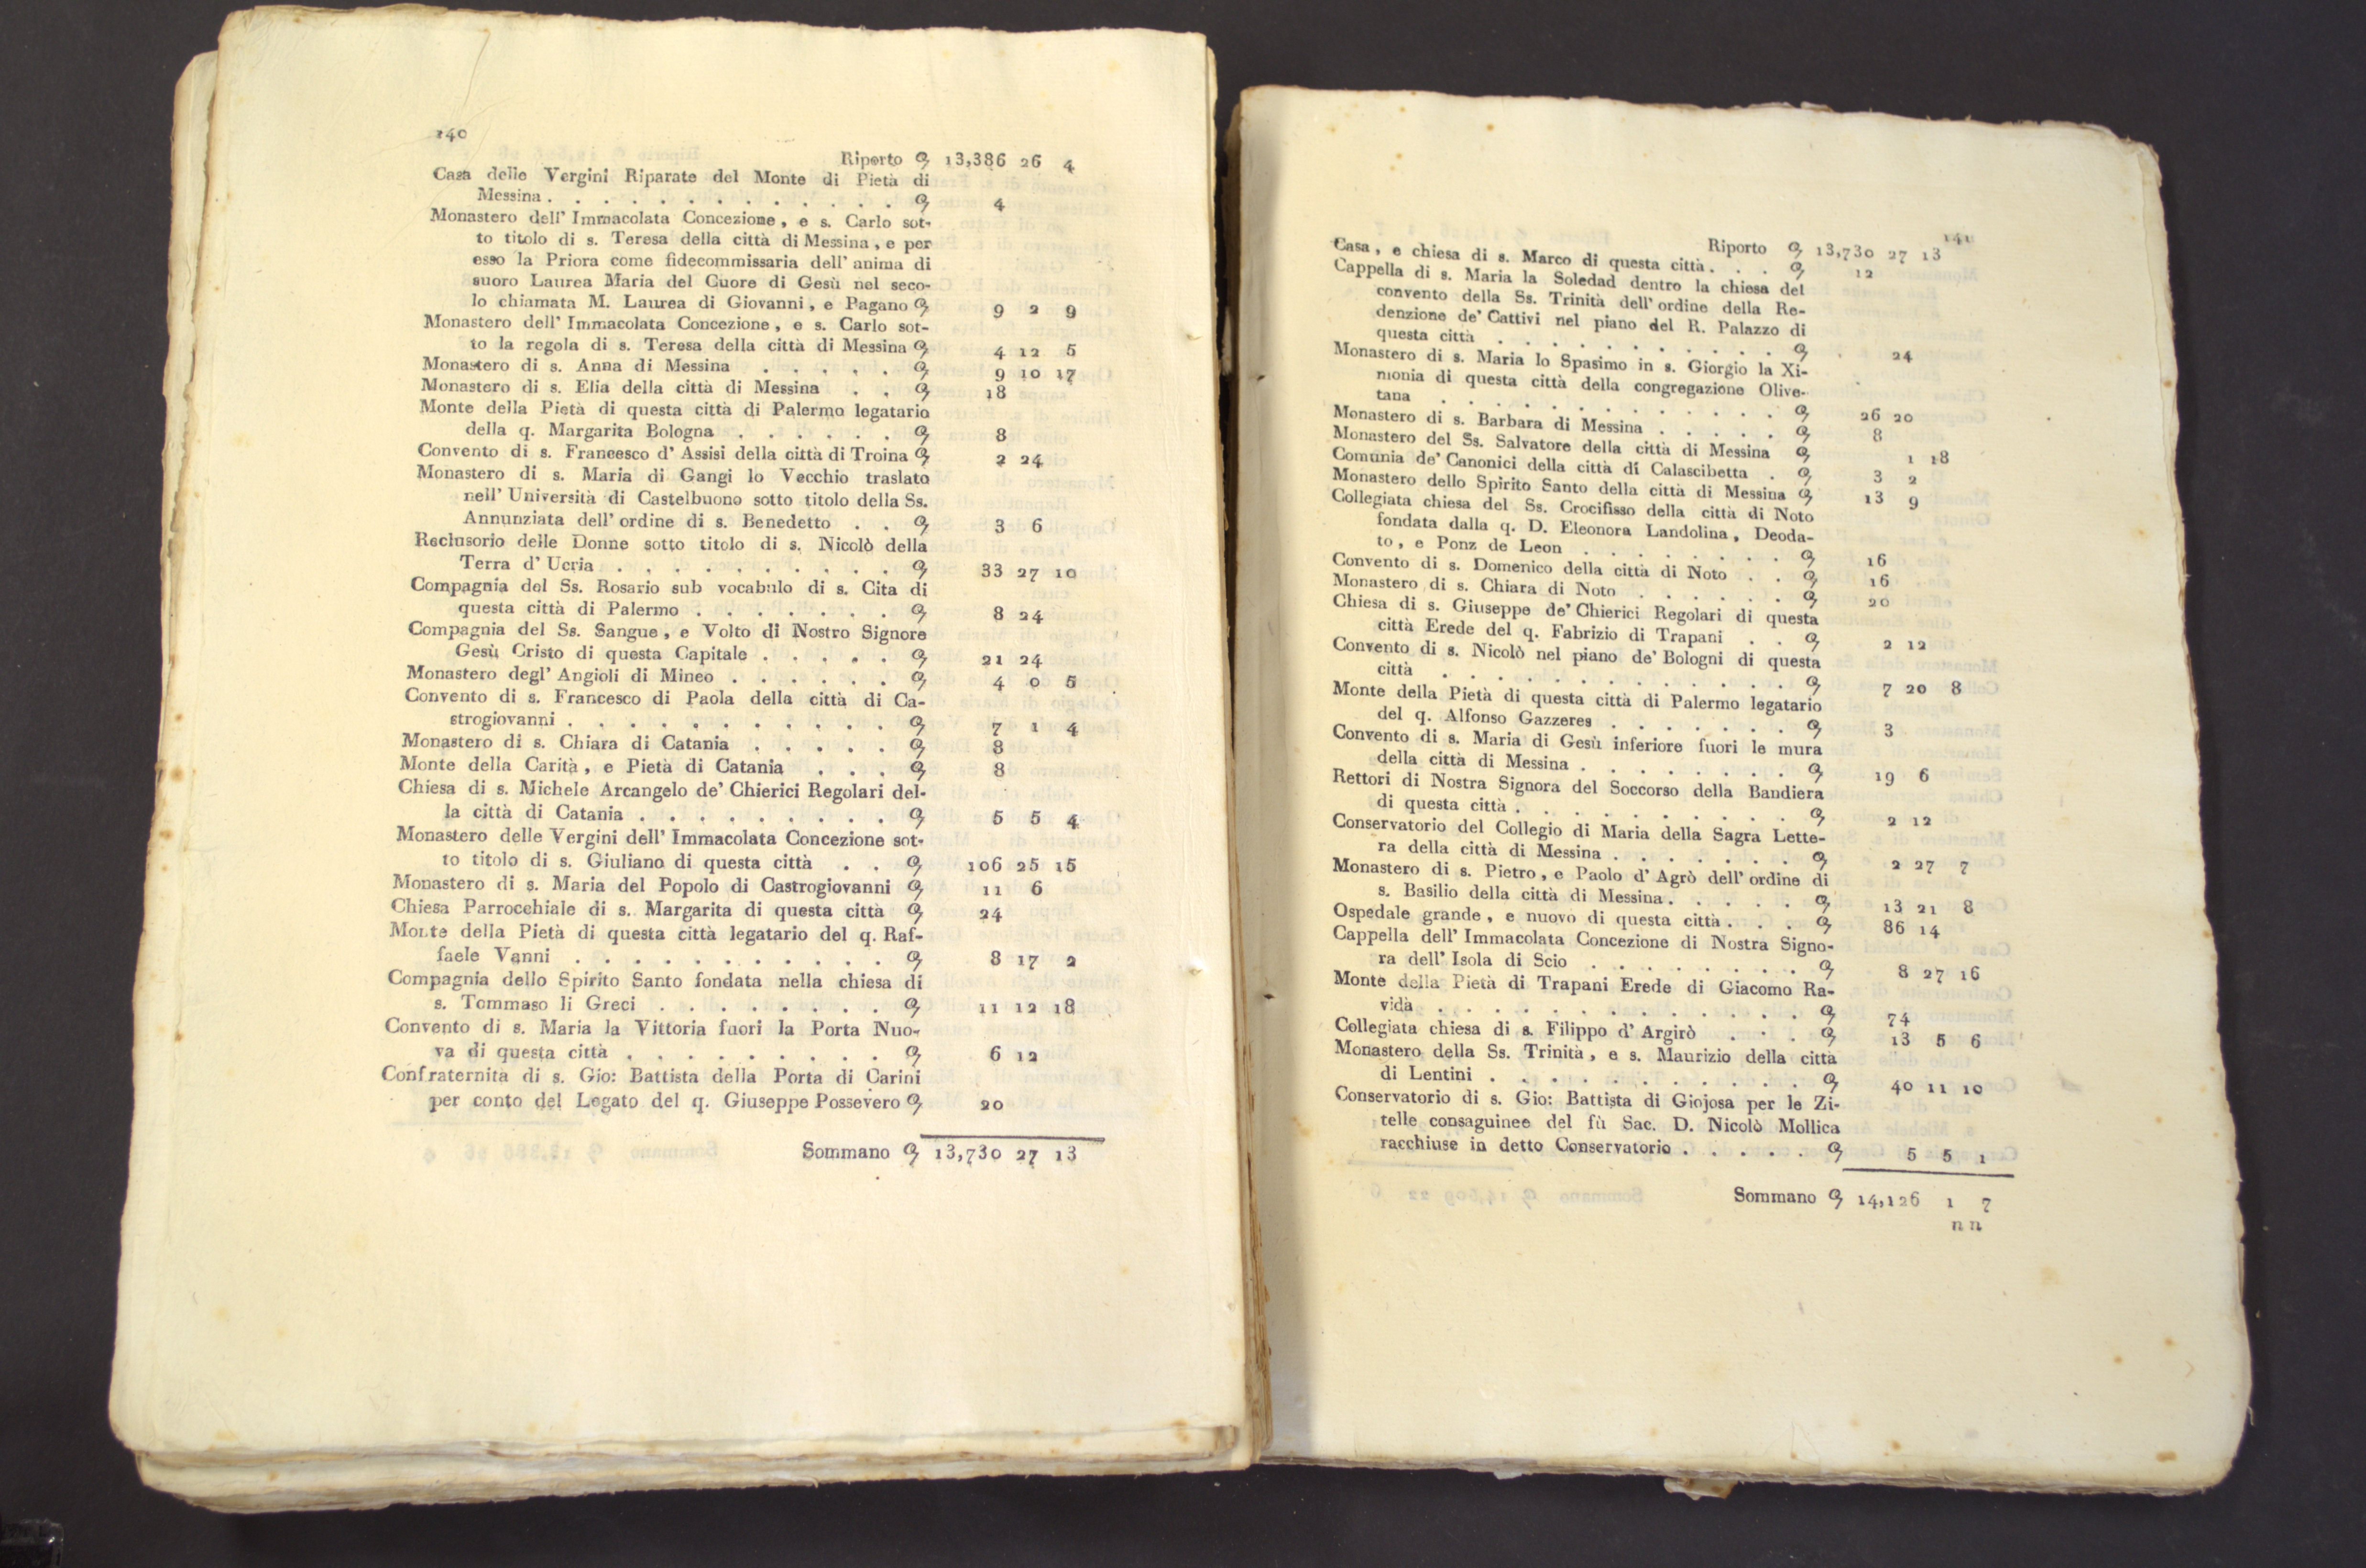 140
Riporto 13,386 26 4
Casa delle Vergini Riparate del Monte di Pietà di
Messina . . . . . . . . . . . . . 4
Monastero dell' Immacolata Concezione, e s. Carlo sot-
to titolo di s. Teresa della città di Messina, e per
esso la Priora come fidecommissaria dell' anima di
suoro Laurea Maria del Cuore di Gesù nel seco-
lo chiamata M. Laurea di Giovanni, e Pagano 9 2 9
Monastero dell' Immacolata Concezione, e s. Carlo sot-
to la regola di s. Teresa della città di Messina 4 12 5
Monastero di s. Anna di Messina . . . . . 9 10 17
Monastero di s. Elia della città di Messina . . 18
Monte della Pietà di questa città di Palermo legatario
della q. Margarita Bologna . . . . . . 8
Convento di s. Francesco d' Assisi della città di Troina 2 24
Monastero di s. Maria di Gangi lo Vecchio traslato
nell' Università di Castelbuono sotto titolo della Ss.
Annunziata dell' ordine di s. Benedetto . . 3 6
Reclusorio delle Donne sotto titolo di s. Nicolò della
Terra d' Ucria . . . . . . . . . . 33 27 10
Compagnia del Ss. Rosario sub vocabulo di s. Cita di
questa città di Palermo . . . . . . . 8 24
Compagnia del Ss. Sangue, e Volto di Nostro Signore
Gesù Cristo di questa Capitale . . . . . 21 24
Monastero degl' Angioli di Mineo . . . . . . 4 0 5
Convento di s. Francesco di Paola della città di Ca-
strogiovanni . . . . . . . . . . . 7 1 4
Monastero di s. Chiara di Catania . . . . . 8
Monte della Carità, e Pietà di Catania . . . 8
Chiesa di s. Michele Arcangelo de' Chierici Regolari del-
la città di Catania . . . . . . . . . 5 5 4
Monastero delle Vergini dell' Immacolata Concezione sot-
to titolo di s. Giuliano di questa città . . 106 25 15
Monastero di s. Maria del Popolo di Castrogiovanni 11 6
Chiesa Parrocchiale di s. Margarita di questa città 24
Monte della Pietà di questa città legatario del q. Raf-
faele Vanni . . . . . . . . . . . 8 17 2
Compagnia dello Spirito Santo fondata nella chiesa di
s. Tommaso li Greci . . . . . . . . 11 12 18
Convento di s. Maria la Vittoria fuori la Porta Nuo-
va di questa città . . . . . . . . . 6 12
Confraternita di s. Gio: Battista della Porta di Carini
per conto del Legato del q. Giuseppe Possevero 20
Sommano 13,730 27 13
141
Riporto 13,730 27 13
Casa, e chiesa di s. Marco di questa città . . . 12
Cappella di s. Maria la Soledad dentro la chiesa del
convento della Ss. Trinità dell' ordine della Re-
denzione de' Cattivi nel piano del R. Palazzo di
questa città . . . . . . . . . . 24
Monastero di s. Maria lo Spasimo in s. Giorgio la Xi-
monia di questa città della congregazione Olive-
tana . . . . . . . . . . . . 26 20
Monastero di s. Barbara di Messina . . . . . 8
Monastero del Ss. Salvatore della città di Messina 1 18
Comunia de' Canonici della città di Calascibetta . 3 2
Monastero dello Spirito Santo della città di Messina 13 9
Collegiata chiesa del Ss. Crocifisso della città di Noto
fondata dalla q. D. Eleonora Landolina, Deoda-
to, e Ponz de Leon . . . . . . . . 16
Convento di s. Domenico della città di Noto . . 16
Monastero di s. Chiara di Noto . . . . . . 20
Chiesa di s. Giuseppe de' Chierici Regolari di questa
città Erede del q. Fabrizio di Trapani . . 2 12
Convento di s. Nicolò nel piano de' Bologni di questa
città . . . . . . . . . . . . . 7 20 8
Monte della Pietà di questa città di Palermo legatario
del q. Alfonso Gazzeres . . . . . . . 3
Convento di s. Maria di Gesù inferiore fuori le mura
della città di Messina . . . . . . . . 19 6
Rettori di Nostra Signora del Soccorso della Bandiera
di questa città . . . . . . . . . . 2 12
Conservatorio del Collegio di Maria della Sagra Lette-
ra della città di Messina . . . . . . . 2 27 7
Monastero di s. Pietro, e Paolo d' Agrò dell' ordine di
s. Basilio della città di Messina . . . . . 13 21 8
Ospedale grande, e nuovo di questa città . . . 86 14
Cappella dell' Immacolata Concezione di Nostra Signo-
ra dell' Isola di Scio . . . . . . . . 8 27 16
Monte della Pietà di Trapani Erede di Giacomo Ra-
vidà . . . . . . . . . . . . . 74
Collegiata chiesa di s. Filippo d' Argirò . . . 13 5 6
Monastero della Ss. Trinità, e s. Maurizio della città
di Lentini . . . . . . . . . . . 40 11 10
Conservatorio di s. Gio: Battista di Giojosa per le Zi-
telle consaguinee del fù Sac. D. Nicolò Mollica
racchiuse in detto Conservatorio . . . . . 5 5 1
Sommano 14,126 1 7
n n